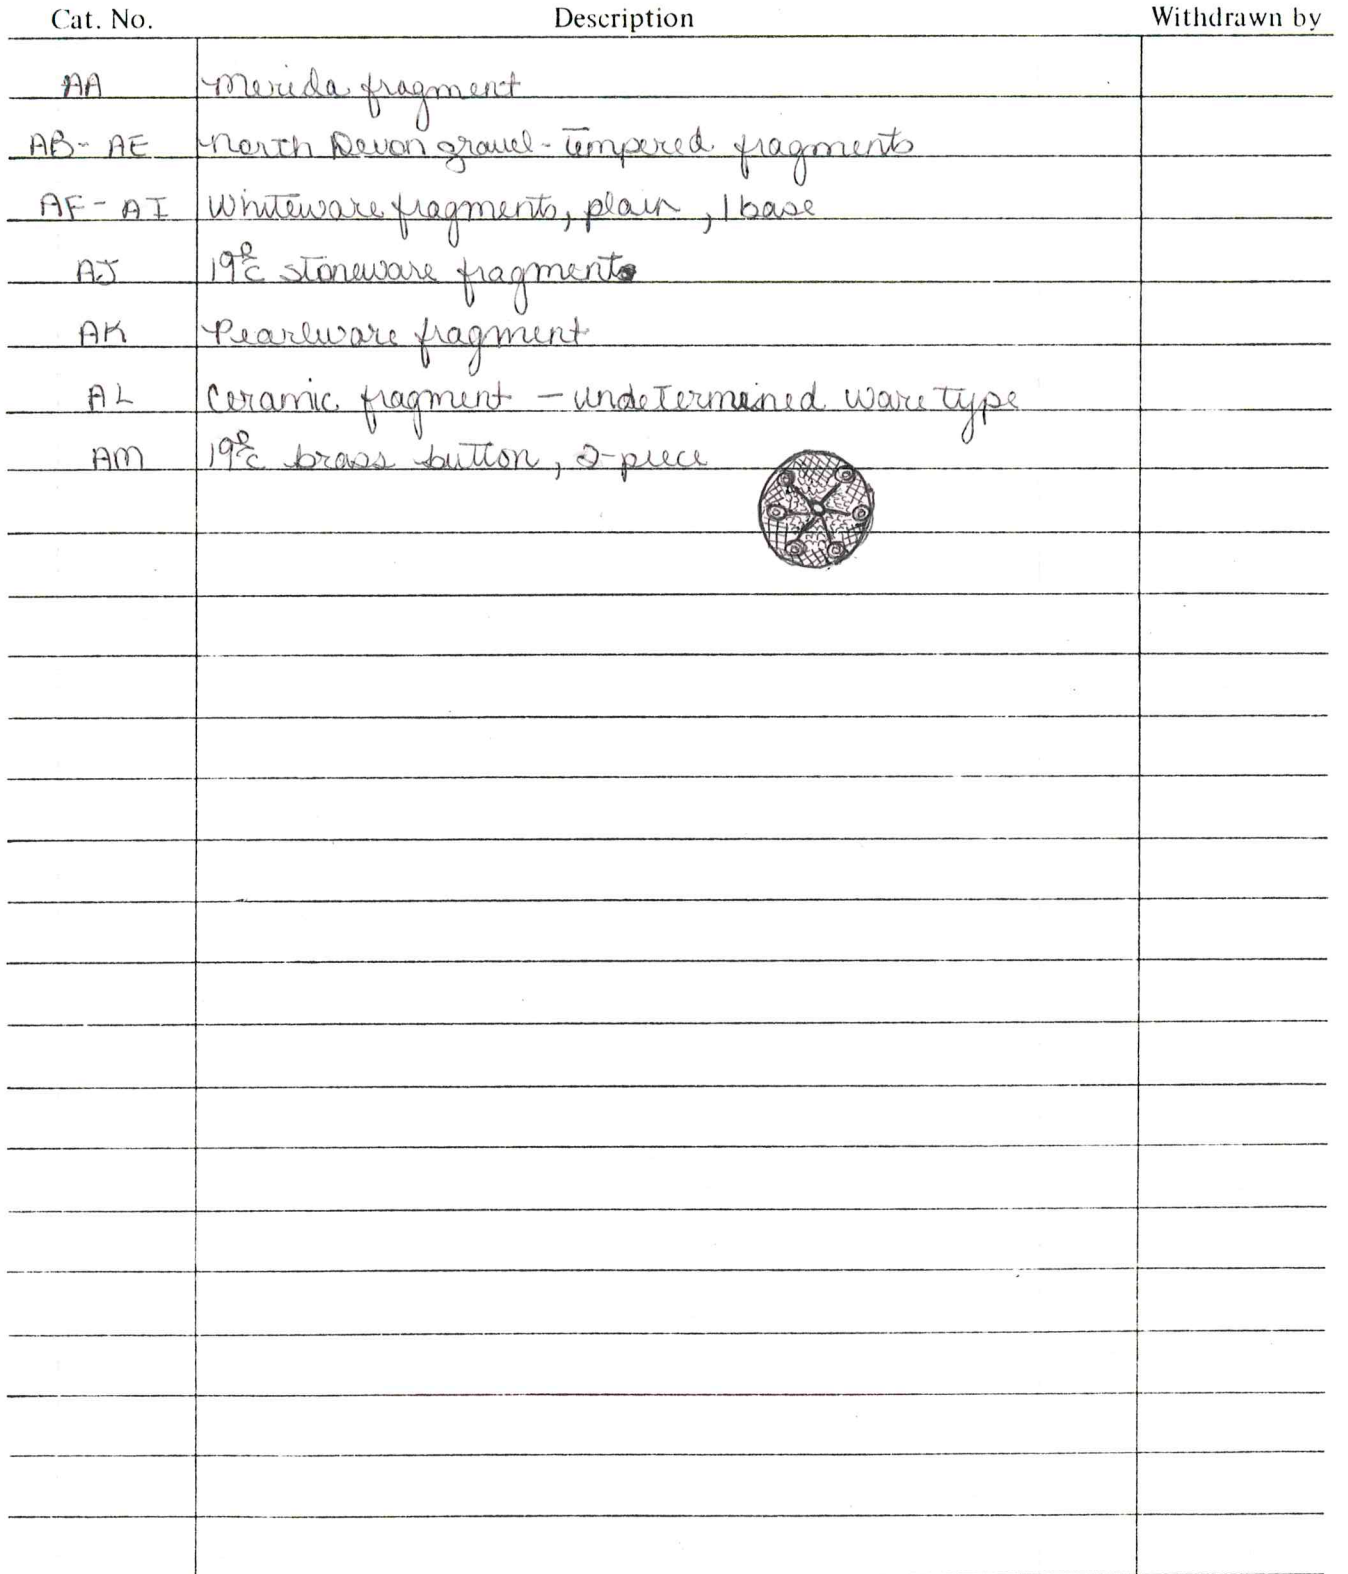 Cat. No. Description Withdrawn by
AA Merida fragment
AB - AE North Devon gravel-tempered fragments
AF - AI Whiteware fragments, plain, 1 base
AJ 19th c stoneware fragment
AK Pearlware fragment
AL Ceramic fragment - undetermined ware type
AM 19th c brass button, 2-piece